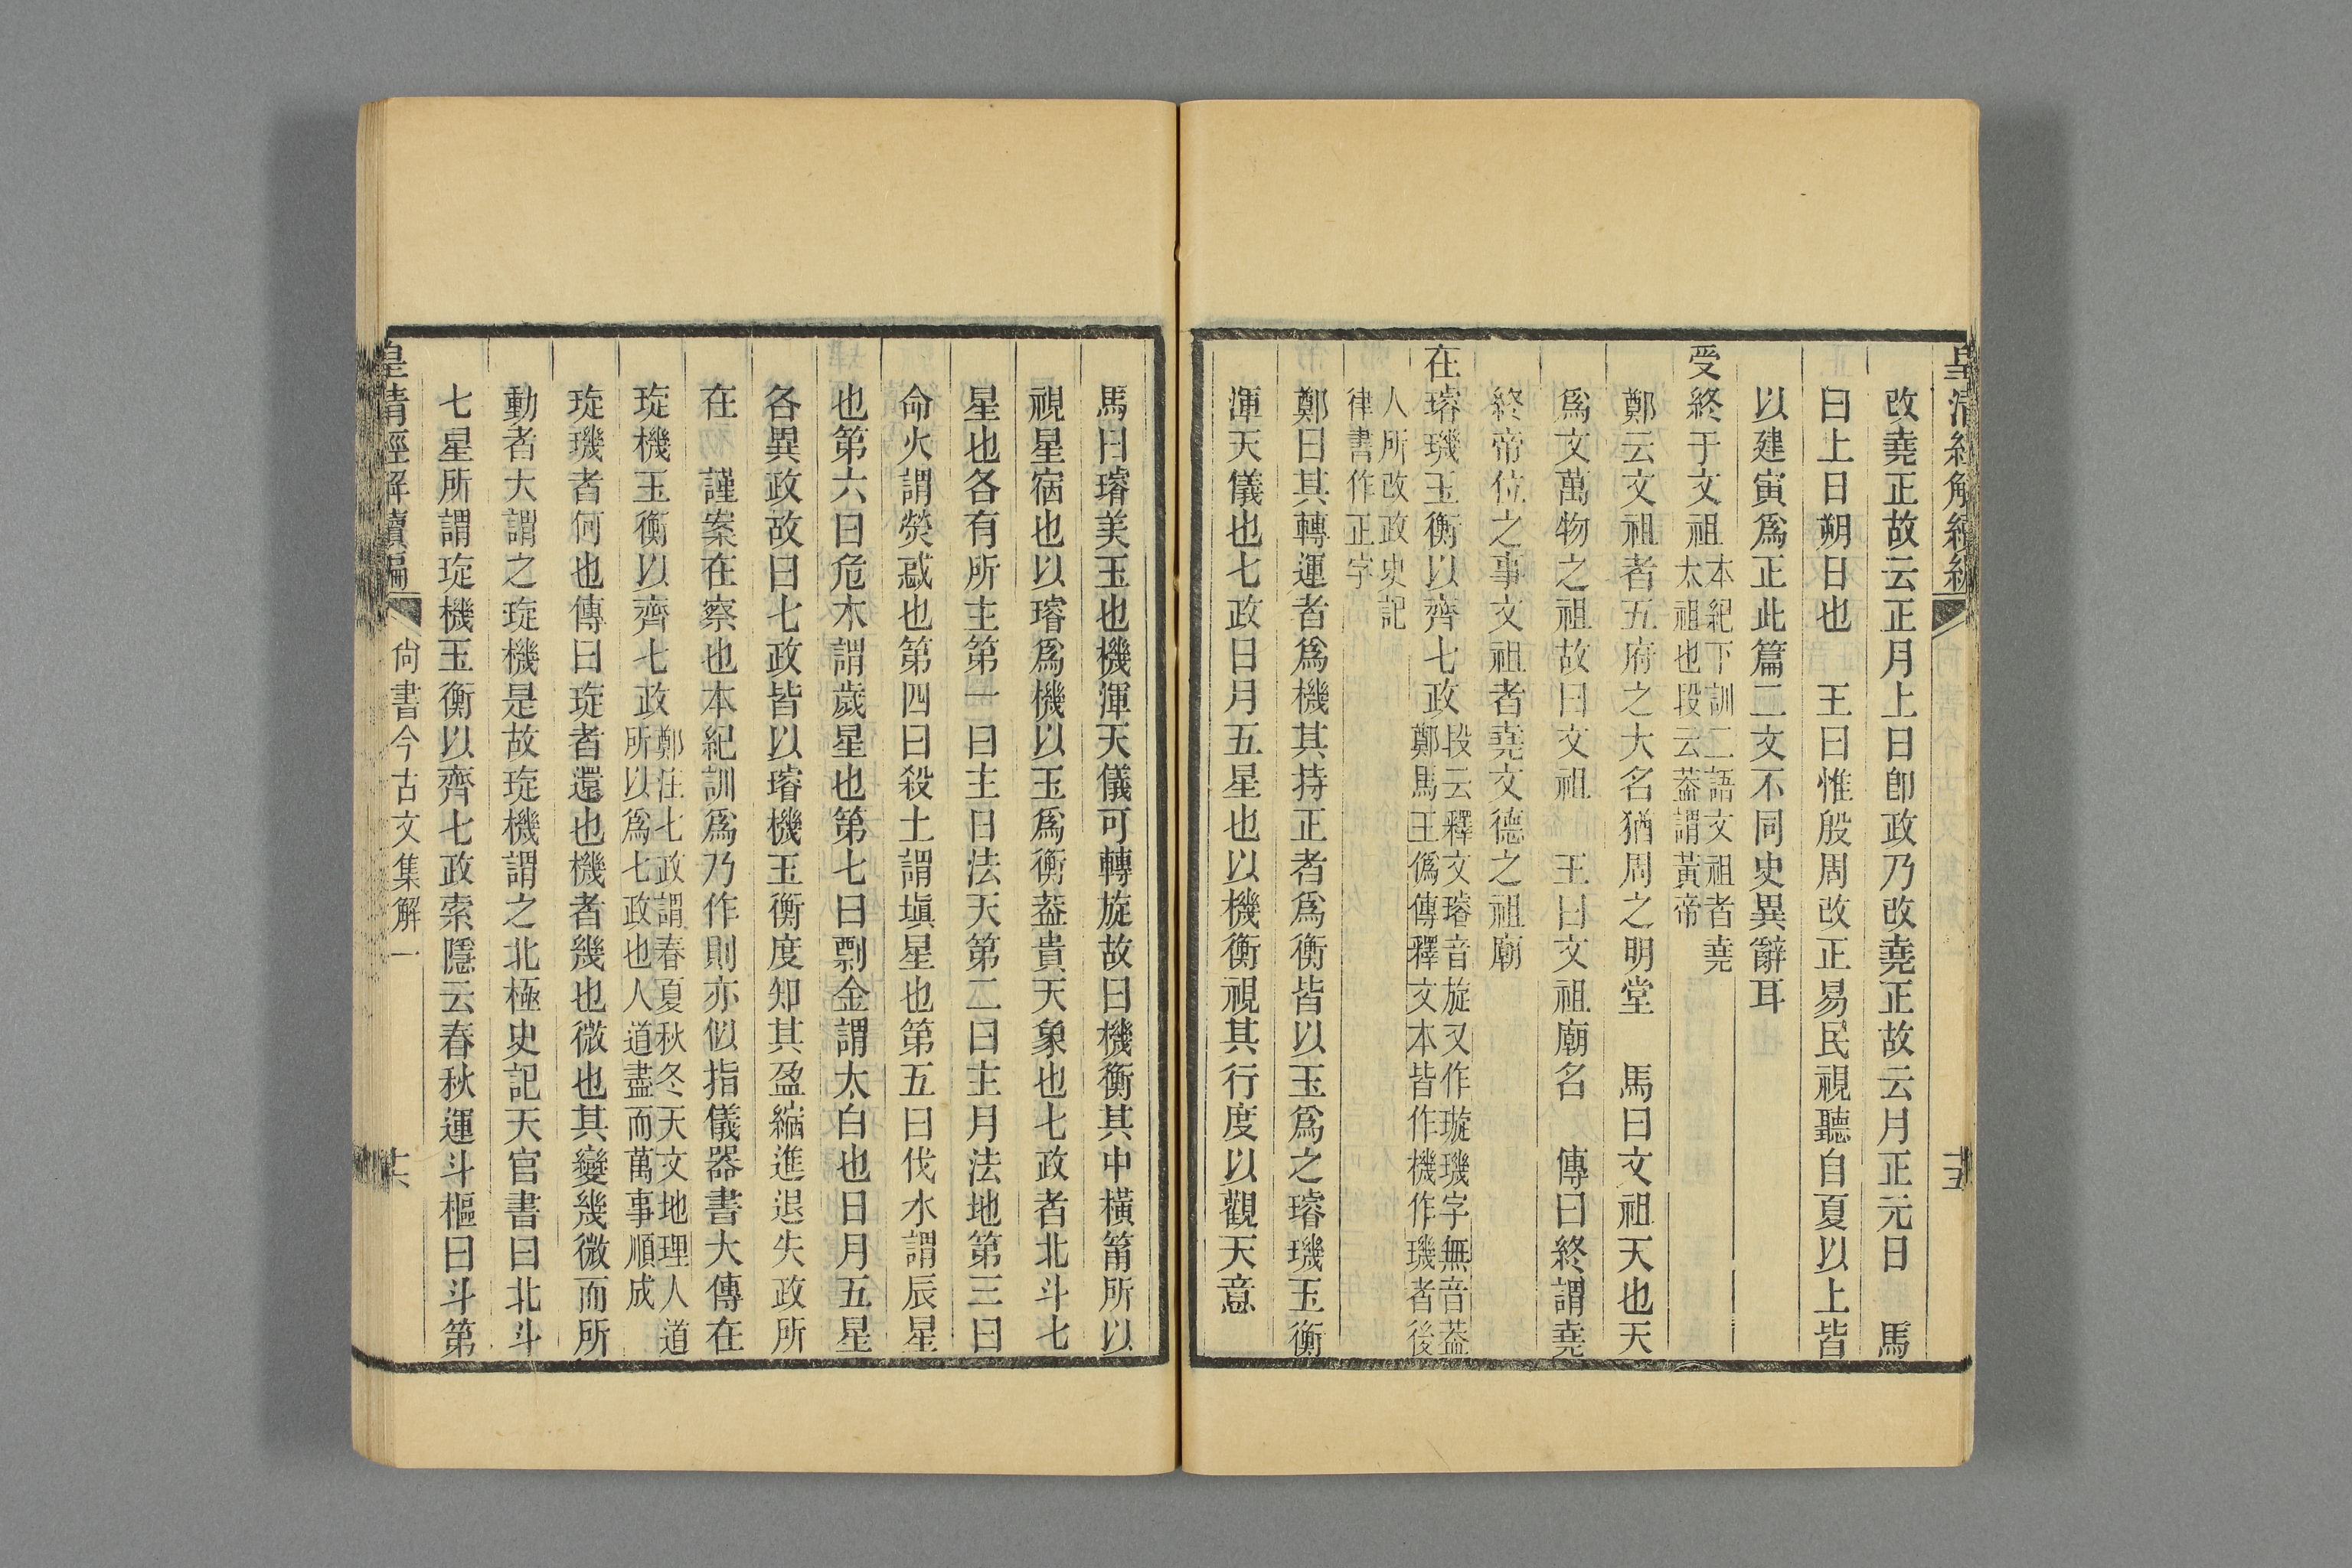 皇清經解續編
十五
改堯正故云正月上日卽政乃改堯正故云月正元日　馬
曰上日朔日也　王曰惟殷周改正易民視聽自夏以上皆
以建寅爲正此篇二文不同史異辭耳
受終于文祖本紀下訓二語文祖者堯
太祖也段云葢謂黃帝
鄭云文祖者五府之大名猶周之明堂　馬曰文祖天也天
爲文萬物之祖故曰文祖　王曰文祖廟名　傳曰終謂堯
終帝位之事文祖者堯文德之祖廟
在璿璣玉衡以齊七政段云釋文璿音旋又作璇璣字無音葢
鄭馬王僞傳釋文本皆作機作璣者後
人所改政史記
律書作正字
鄭曰其轉運者爲機其持正者爲衡皆以玉爲之璿璣玉衡
渾天儀也七政日月五星也以機衡視其行度以觀天意
馬曰璿美玉也機渾天儀可轉旋故曰機衡其中橫筩所以
視星宿也以璿爲機以玉爲衡葢貴天象也七政者北斗七
星也各有所主第一曰主日法天第二曰主月法地第三曰
命火謂熒惑也第四曰殺土謂塡星也第五曰伐水謂辰星
也第六曰危木謂歲星也第七曰剽金謂太白也日月五星
各異政故曰七政皆以璿機玉衡度知其盈縮進退失政所
在　謹案在察也本紀訓爲乃作則亦似指儀器書大傳在
琁機玉衡以齊七政鄭注七政謂春夏秋冬天文地理人道
所以爲七政也人道盡而萬事順成
琁璣者何也傳曰琁者還也機者幾也微也其變幾微而所
動者大謂之琁機是故琁機謂之北極史記天官書曰北斗
七星所謂琁機玉衡以齊七政索隱云春秋運斗樞曰斗第
皇清經解續編
尙書今古文集解一
十六